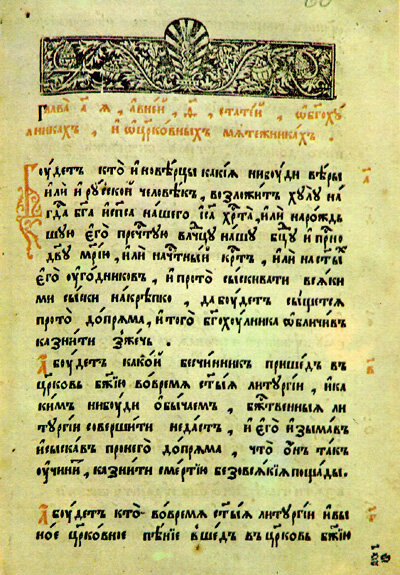 Глава а҃ я, а вней, ѳ҃, статей, ѡ бг҃оху
лникахъ, и ѡ цр҃ковныхъ мятежникахъ.
Боудетъ кто иновѣрцы какия нибоуди вѣры
или и роуской человекъ, возложитъ хоулу на
гд҃а бг҃а и сп҃са нашего іс҃а хрⷭ҇та, или нарождь
шую его прⷱ҇тую влⷣчцу нашу бцⷣу и прⷭ҇но
дв҃ву мр҃ию, или на чтⷭ҇ный крⷭ҇тъ, или на ст҃ыхъ
его оугодниковъ, и про то сыскивати всяки
ми сыски накрѣпко, да боудетъ сыщется
про то допряма, и того бг҃охоулника ѡбличивъ
казнити зжечь.
а҃
А боудетъ какой бесчинникъ пришедъ въ
цр҃ковь бж҃ию во время ст҃ыя литургии, и ка
кимъ нибоуди обычаемъ, бжⷭ҇твенныя ли
тургии совершити не дастъ, и его изымавъ
и сыскавъ про него допряма, что онъ такъ
оучинитъ, казнити смертию безо всякия пощады.
в҃
А боудетъ кто во время ст҃ыя литургии и в ы
ное цр҃ковное пѣние вшедъ въ цр҃ковь бж҃ию